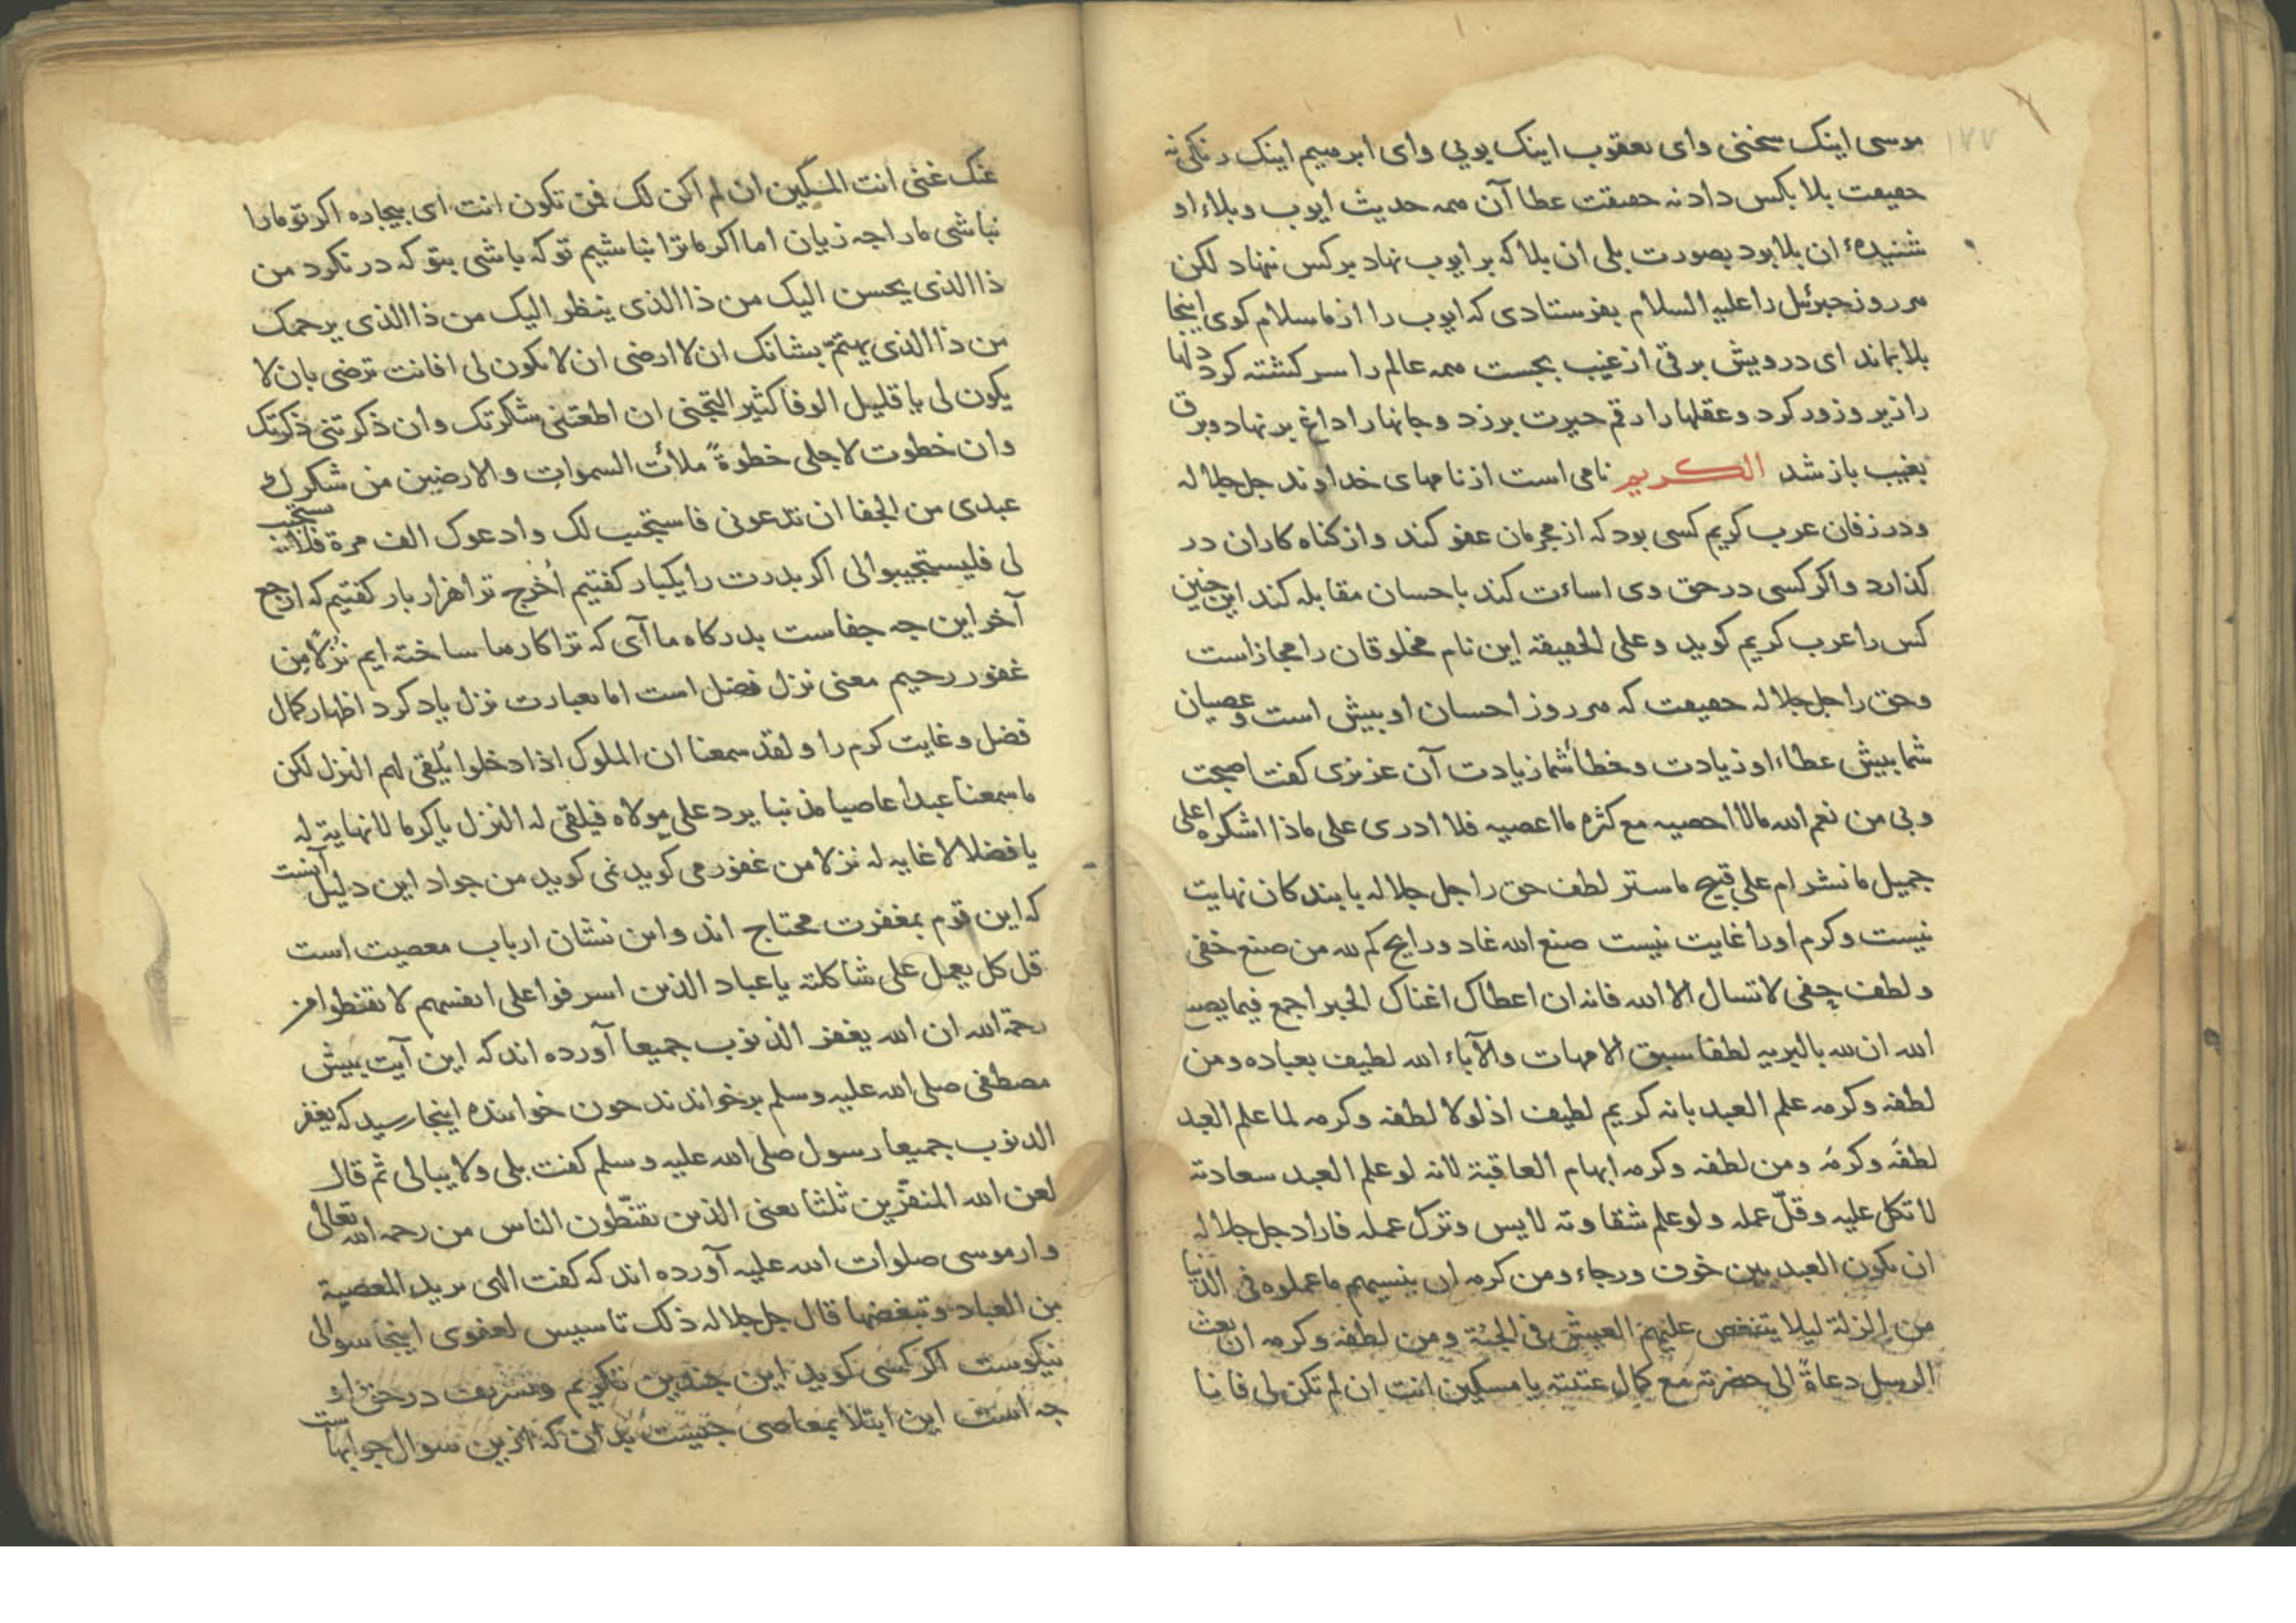 موسی اینک سخنی وای یعقوب اینک بویی وای ابرهیم اینک رنگی نه
حقیقت بلا بکس داد نه حقیقت عطا آن همه حدیث ایوب و بلاء او
شنیدهٔ ان بلا بود بصورت بلی ان بلا که بر ایوب نهاد بر کس ننهاد لکن
هر روز جبرئیل را علیه السلام بفرستادی که ایوب را از ما سلام کوی اینجا
بلا بماند ای درویش برقی از غیب بجست همه عالم را سرکشته کرد دلها
را زیر و زور کرد و عقلها را رقم حیرت برزد و جانها را داغ بر نهاد و برق
بغیب باز شد الکریم نامی است از نامهای خداوند جل جلاله
و در زفان عرب کریم کسی بود که از مجرمان عفو کند و از کناه کاران در
کذارد و اکر کسی در حق وی اساءت کند باحسان مقابله کند این چنین
کس را عرب کریم کوید و علی الحقیقه این نام مخلوقان را مجازاست
و حق را جل جلاله حقیقت که هر روز احسان او بیش است و عصیان
شما بیش عطاء او زیادت و خطأ شما زیادت آن عزیزی کفت اصبحت
و بی من نعم الله مالا احصیه مع کثرة ما اعصیه فلا ادری علی ماذا اشکره اعلی
جمیل ما نشر ام علی قبیح ما ستر لطف حق را جل جلاله با بندکان نهایت
نیست و کرم او را غایت نیست صنع الله غاد و رایح کم لله من صنع خفی
و لطف خفی لا تسال الا الله فانه ان اعطاک اغناک الخیر اجمع فیما یصنع
الله ان لله بالبریه لطفا سبق الامهات والآباء الله لطیف بعباده و من
لطفه و کرمه علم العبد بانه کریم لطیف اذ لولا لطفه و کرمه لما علم العبد
لطفَه و کرمَه و من لطفه و کرمه ابهام العاقبة لانه لو علم العبد سعادته
لاتکل علیه و قلّ عمله و لو علم شقاوته لایس و ترک عمله فاراد جل جلاله
ان یکون العبد بین خوف و رجاء و من کرمه ان ینسیهم ما عملوه فی الدنیا
من الزلة لیلا یتنغص علیهم العیش فی الجنة و من لطفه و کرمه ان بعث
الرسل دعاةً الی حضرته مع کمال یا مسکین انت ان لم تکن لی فانا
عنک غنی انت المسکین ان لم اکن لک فمن تکون انت ای بیچاره اکر تو مارا
نباشی مارا چه زیان اما اکر ما ترا نباشیم تو که باشی بتو که در نکرد من
ذا الذی یحسن الیک من ذا الذی ینظر الیک من ذا الذی یرحمک
من ذا الذی یهتمّ بشانک ان لا ارضی ان لا یکون لی افانت ترضی بان لا
یکون لی یا قلیل الوفا کثیر التجنی ان اطعتنی شکرتک و ان ذکرتنی ذکرتک
و ان خطوت لاجلی خطوةً ملأت السموات و الارضین من شکرک
عبدی من الجفا ان تدعونی فاستجیب لک و ادعوک الف مرة فلا تستجیب
لی فلیستجیبوا لی اکر پدرت را یکبار کفتیم اُخرج ترا هزار بار کفتیم که ارجع
آخر این چه جفاست بدرکاه ما آی که ترا کارها ساخته ایم نُزُلًا من
غفور رحیم معنی نزل فضل است اما بعبارت نزل یاد کرد اظهار کمال
فضل و غایت کرم را و لقد سمعنا ان الملوک اذا دخلوا یُلقی لهم النزل لکن
ما سمعنا عبدا عاصیا مذنبا یرد علی مولاه فیلقی له النزل یا کرما لا نهایة له
یا فضلا لا غایه له نزلا من غفور می کوید نمی کوید من جواد این دلیل آنست
که این قوم بمغفرت محتاج اند و این نشان ارباب معصیت است
قل کل یعمل علی شاکلته یا عباد الذین اسرفوا علی انفسهم لا تقنطوا من
رحمة الله ان الله یغفر الذنوب جمیعا آورده اند که این آیت پیش
مصطفی صلی الله علیه و سلم برخواندند چون خواننده اینجا رسید که یغفر
الذنوب جمیعا رسول صلی الله علیه و سلم کفت بلی و لا یبالی ثم قال
لعن الله المنفّرین ثلثا یعنی الذین یقنّطون الناس من رحمه الله تعالی
و از موسی صلوات الله علیه آورده اند که کفت الهی ترید المعصیة
من العباد و تبغضها قال جل جلاله ذلک تاسیس لعفوی اینجا سوالی
نیکوست اکر کسی کوید این چندین تکریم و تشریف در حق او
چه است این ابتلا بمعاصی چیست بدان که ازین سوال جوابهاست